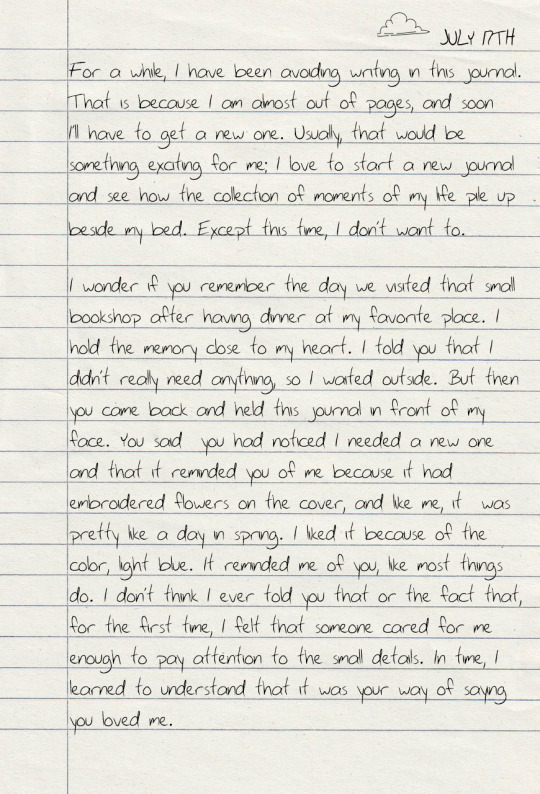 JULY 17TH
For a while, I have been avoiding writing in this journal.
That is because I am almost out of pages, and soon
I'll have to get a new one. Usually, that would be
something exciting for me; I love to start a new journal
and see how the collection of moments of my life pile up
beside my bed. Except this time, I don't want to.
I wonder if you remember the day we visited that small
bookshop after having dinner at my favorite place. I
hold the memory close to my heart. I told you that I
didn't really need anything, so I waited outside. But then
you came back and held this journal in front of my
face. You said you had noticed I needed a new one
and that it reminded you of me because it had
embroidered flowers on the cover, and like me, it was
pretty like a day in spring. I liked it because of the
color, light blue. It reminded me of you, like most things
do. I don't think I ever told you that or the fact that,
for the first time, I felt that someone cared for me
enough to pay attention to the small details. In time, I
learned to understand that it was your way of saying
you loved me.